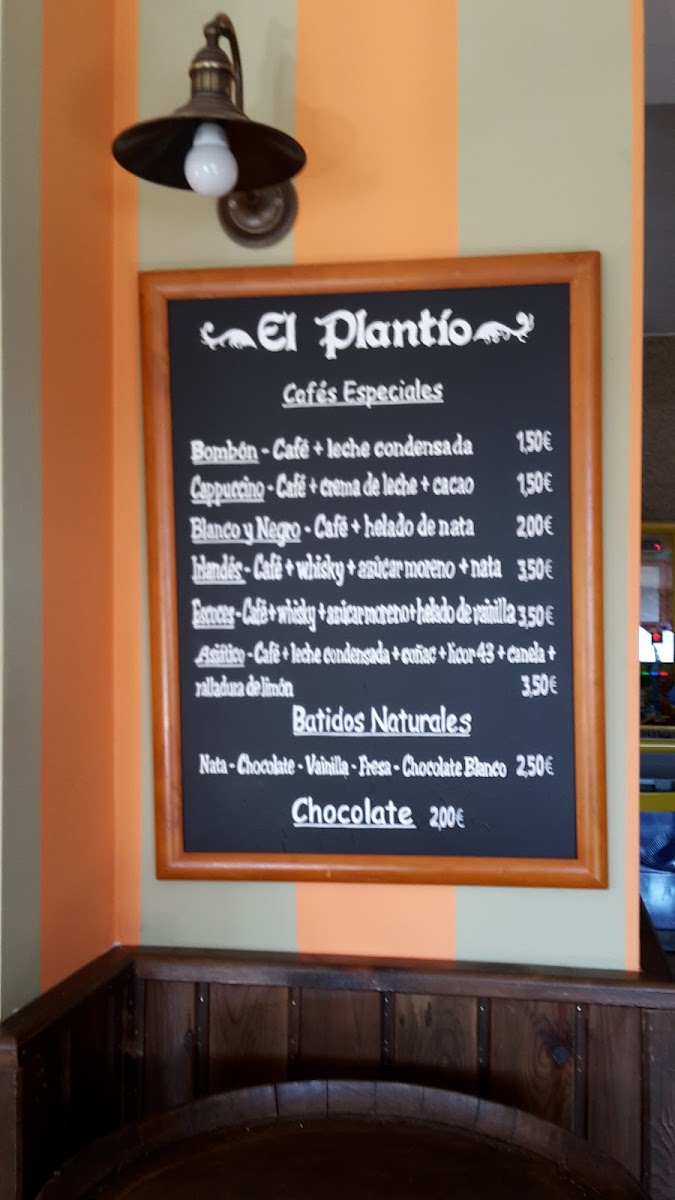 El Plantío
Cafés Especiales
Bombón - Café + leche condensada 1,50€
Cappuccino - Café + crema de leche + cacao 1,50€
Blanco y Negro - Café + helado de nata 2,00€
Irlandés - Café + whisky + azúcar moreno + nata 3,50€
Escoces - Café + whisky + azúcar moreno + helado de vainilla 3,50€
Asiático - Café + leche condensada + coñac + licor 43 + canela +
ralladura de limón 3,50€
Batidos Naturales
Nata - Chocolate - Vainilla - Fresa - Chocolate Blanco 2,50€
Chocolate 2,00€